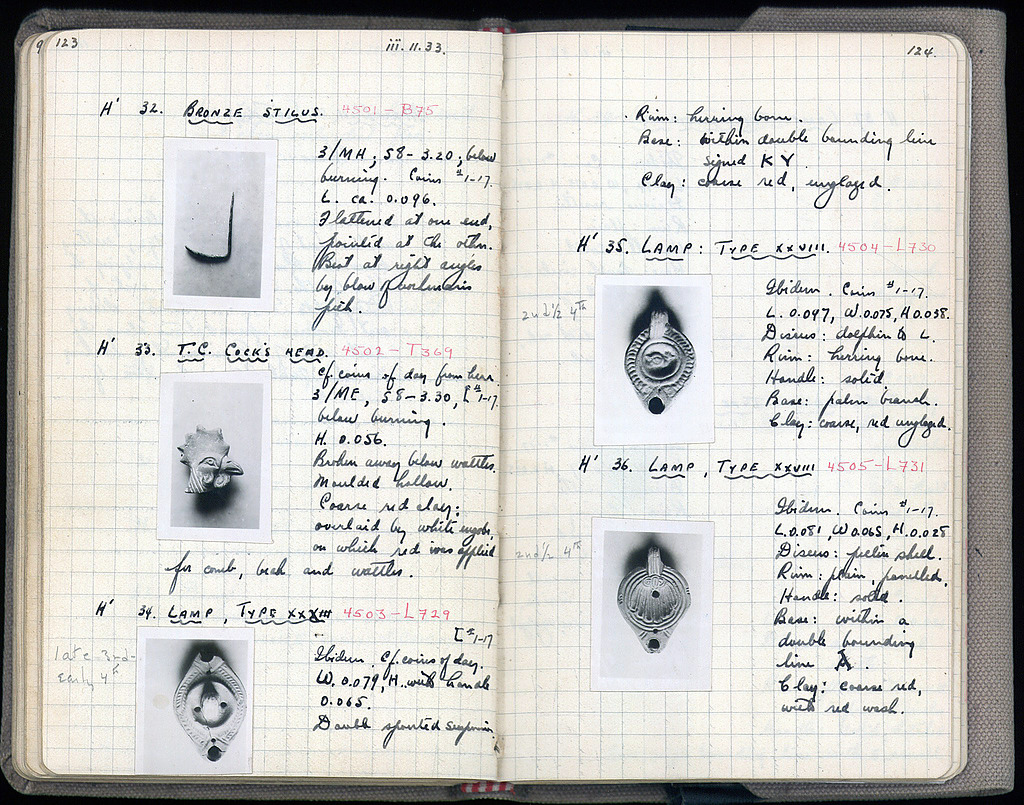 9 123
iii. 11. 33.
H' 32. BRONZE STILUS. 4501 - B75
3/MH; 58 - 3.20; below
burning. Coins #1-17.
L. ca. 0.096.
Flattened at one end,
pointed at the other.
Bent at right angles
by blow of workman's
pick.
H' 33. T.C. COCK'S HEAD. 4502 - T369
Cf. coins of day from here
3/ME, 58 - 3.30, [#1-17.
below burning.
H. 0.056.
Broken away below wattles.
Moulded hollow.
Coarse red clay;
overlaid by white engobe,
on which red was applied
for comb, beak and wattles.
H' 34. LAMP, TYPE 4503 - L729
[#1-17
late 3rd -
early 4th
Ibidem. Cf. coins of day.
W. 0.079, H. with handle
0.065.
Double spouted
124.
Rim: herring bone.
Base: within double bounding line
signed KY.
Clay: coarse red, unglazed.
H' 35. LAMP: TYPE XXVIII. 4504 - L730
2nd 1/2 4th
Ibidem. Coins #1-17.
L. 0.097, W. 0.075, H. 0.038.
Discus: dolphin to L.
Rim: herring bone.
Handle: solid.
Base: palm branch.
Clay: coarse, red unglazed.
H' 36. LAMP, TYPE XXVIII 4505 - L731
2nd 1/2 4th
Ibidem. Coins #1-17.
L. 0.081, W. 0.065, H. 0.028
Discus: pecten shell.
Rim: plain, panelled.
Handle: solid.
Base: within a
double bounding
line A.
Clay: coarse red,
with red wash.